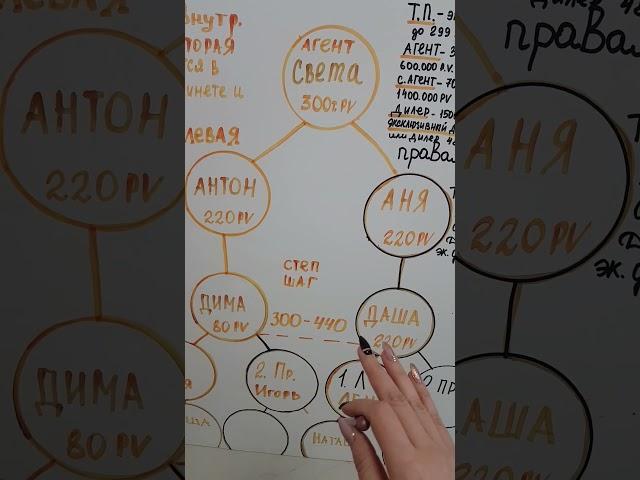 ВНУТР.
ТОРАЯ
ТСЯ В
ИНЕТЕ И
ЛЕВАЯ
АГЕНТ
СВЕТА
300т PV
Т.П. - Э
ДО 299
АГЕНТ - 3
600.000 P.V.
С.АГЕНТ - 70
1400.000 PV
ДИЛЕР - 150
ЭКСКЛЮЗИВНЫЙ Д
ИЛИ ДИЛЕР 4
ПРАВА
АНТОН
220PV
АНЯ
220PV
СТЕП
ШАГ
ДИМА
80 PV
300-440
ДАША
220PV
2. ПР.
ИГОРЬ
1. Л
2 ПР
НАТА
АНТОН
220PV
ДИМА
80 PV
ДИЛЕР
ПРАВА
АНЯ
220PV
ЭК.
ДАША
220PV